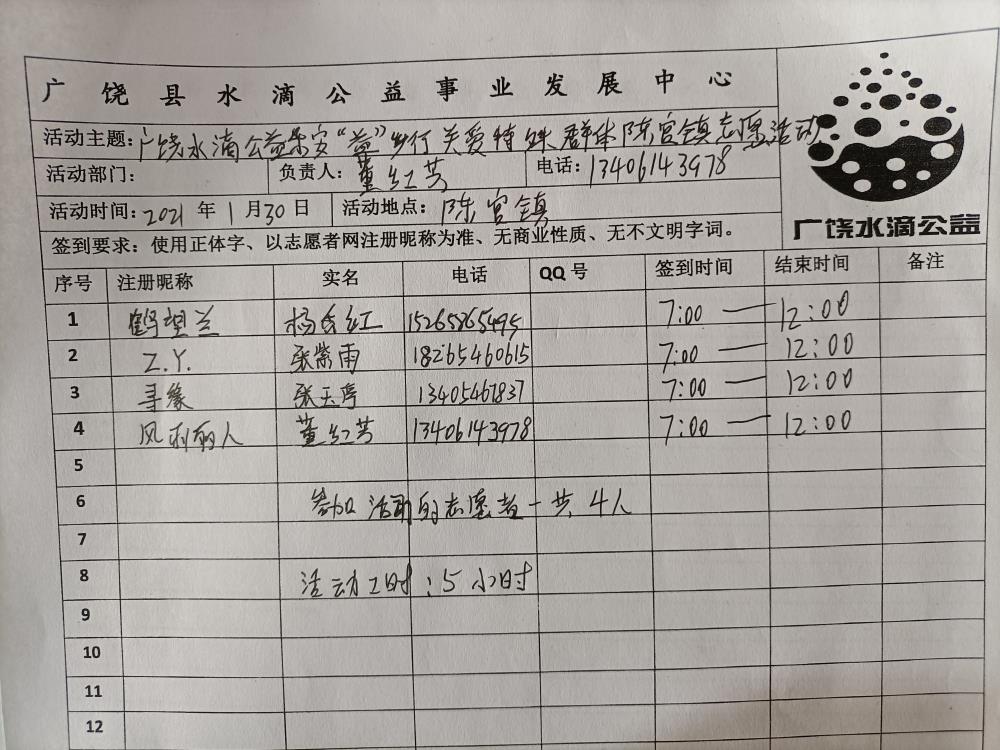 广饶县水滴公益事业发展中心
活动主题:广饶水滴公益乐安“益”步行 关爱特殊群体陈官镇志愿活动
活动部门: 负责人:董红芳 电话:13406143978
活动时间:2021年1月30日 活动地点:陈官镇
广饶水滴公益
签到要求:使用正体字、以志愿者网注册昵称为准、无商业性质、无不文明字词。
序号 注册昵称 实名 电话 QQ号 签到时间 结束时间 备注
1 鹤望兰 杨红 15265865495 7:00 — 12:00
2 Z.Y. 张紫雨 18265460615 7:00 — 12:00
3 寻缘 张玉婷 13405467837 7:00 — 12:00
4 风雨丽人 董红芳 13406143978 7:00 — 12:00
5
6 参加活动的志愿者一共4人
7
8 活动工时:5小时
9
10
11
12